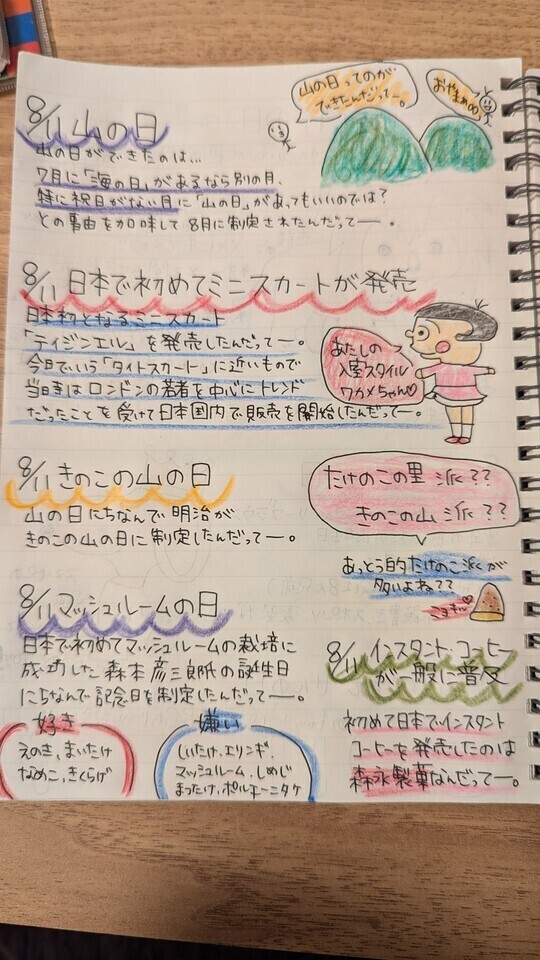 山の日ってのが
できたんだってー。
おやまぁ
8/11 山の日
山の日ができたのは…
7月に「海の日」があるなら別の月、
特に祝日がない月に「山の日」があってもいいのでは?
との事由を加味して8月に制定されたんだってー。
8/11 日本で初めてミニスカートが発売
日本初となるミニスカート
「テイジンエル」を発売したんだってー。
今日でいう「タイトスカート」に近いもので
当時はロンドンの若者を中心にトレンド
だったことを受けて日本国内で販売を開始したんだってー。
あたしの
スタイル
ワカメちゃん♡
8/11 きのこの山の日
山の日にちなんで明治が
きのこの山の日に制定したんだってー。
たけのこの里派??
きのこの山派??
あっとう的たけのこ派が
多いよね??
8/11 マッシュルームの日
日本で初めてマッシュルームの栽培に
成功した森本彦三郎氏の誕生日
にちなんで記念日を制定したんだってー。
好き
えのき、まいたけ
なめこ、きくらげ
嫌い
しいたけ、エリンギ、
マッシュルーム、しめじ
まつたけ、ポルチーニタケ
8/11 インスタント・コーヒー
が一般に普及
初めて日本でインスタント
コーヒーを発売したのは
森永製菓なんだってー。